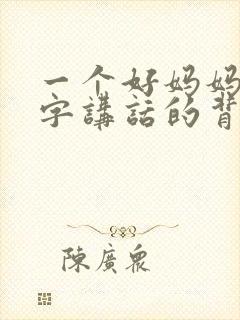 一个好妈妈
字講話的背
陳廣眾